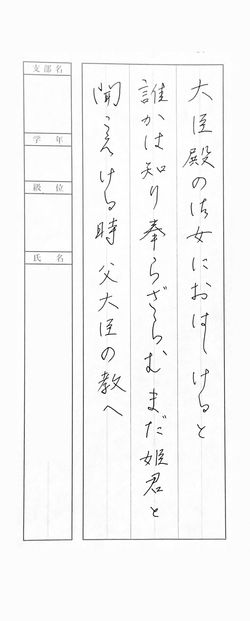 大臣殿の御女におはしけると
誰かは知り奉らざらむまだ姫君と
聞えける時父大臣の教へ
支部名
学年
級位
氏名